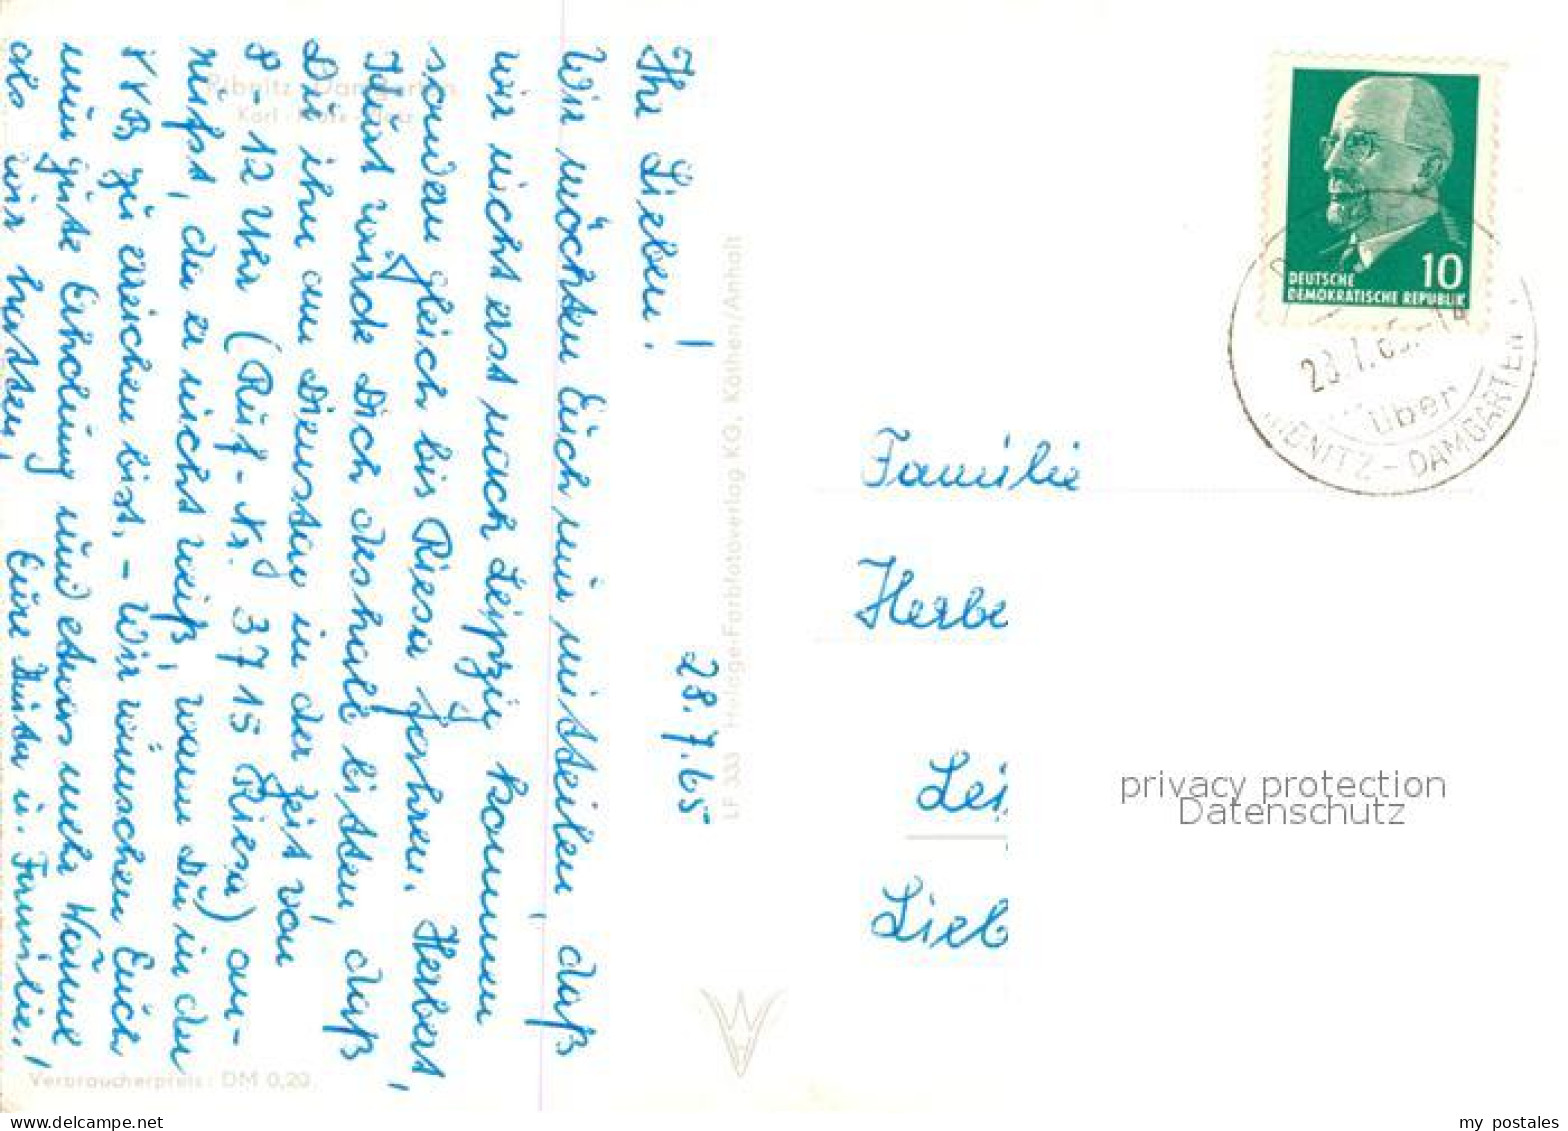 Ribnitz-Damgarten
28.7.65
Ihr Lieben!
Wir möchten Euch nur mitteilen, daß
wir nicht erst nach Leipzig kommen
sondern gleich bis Riesa fahren. Herbert,
Kurt würde Dich deshalb bitten, daß
Du ihn am Dienstag in der Zeit von
8 - 12 Uhr (Ruf-Nr. 3715 Riesa) an-
rufst, da er nicht weiß, wann Du in der
VVB zu erreichen bist. - Wir wünschen Euch
nun gute Erholung und etwas mehr Wärme
als wir hatten, Eure u. Familie!
Verbraucherpreis: DM 0,20
LF 333 Verlage-Farbfotoverlag KG, Köthen/Anhalt
DEUTSCHE
DEMOKRATISCHE REPUBLIK
10
über
RIBNITZ-DAMGARTEN
Familie
Herbe
Lei
Lieb
privacy protection
Datenschutz
my postales